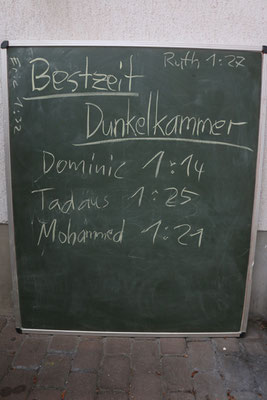 Ruth 1:27
Eric 1:32
Bestzeit
Dunkelkammer
Dominic 1:14
Tadäus 1:25
Mohammed 1:21